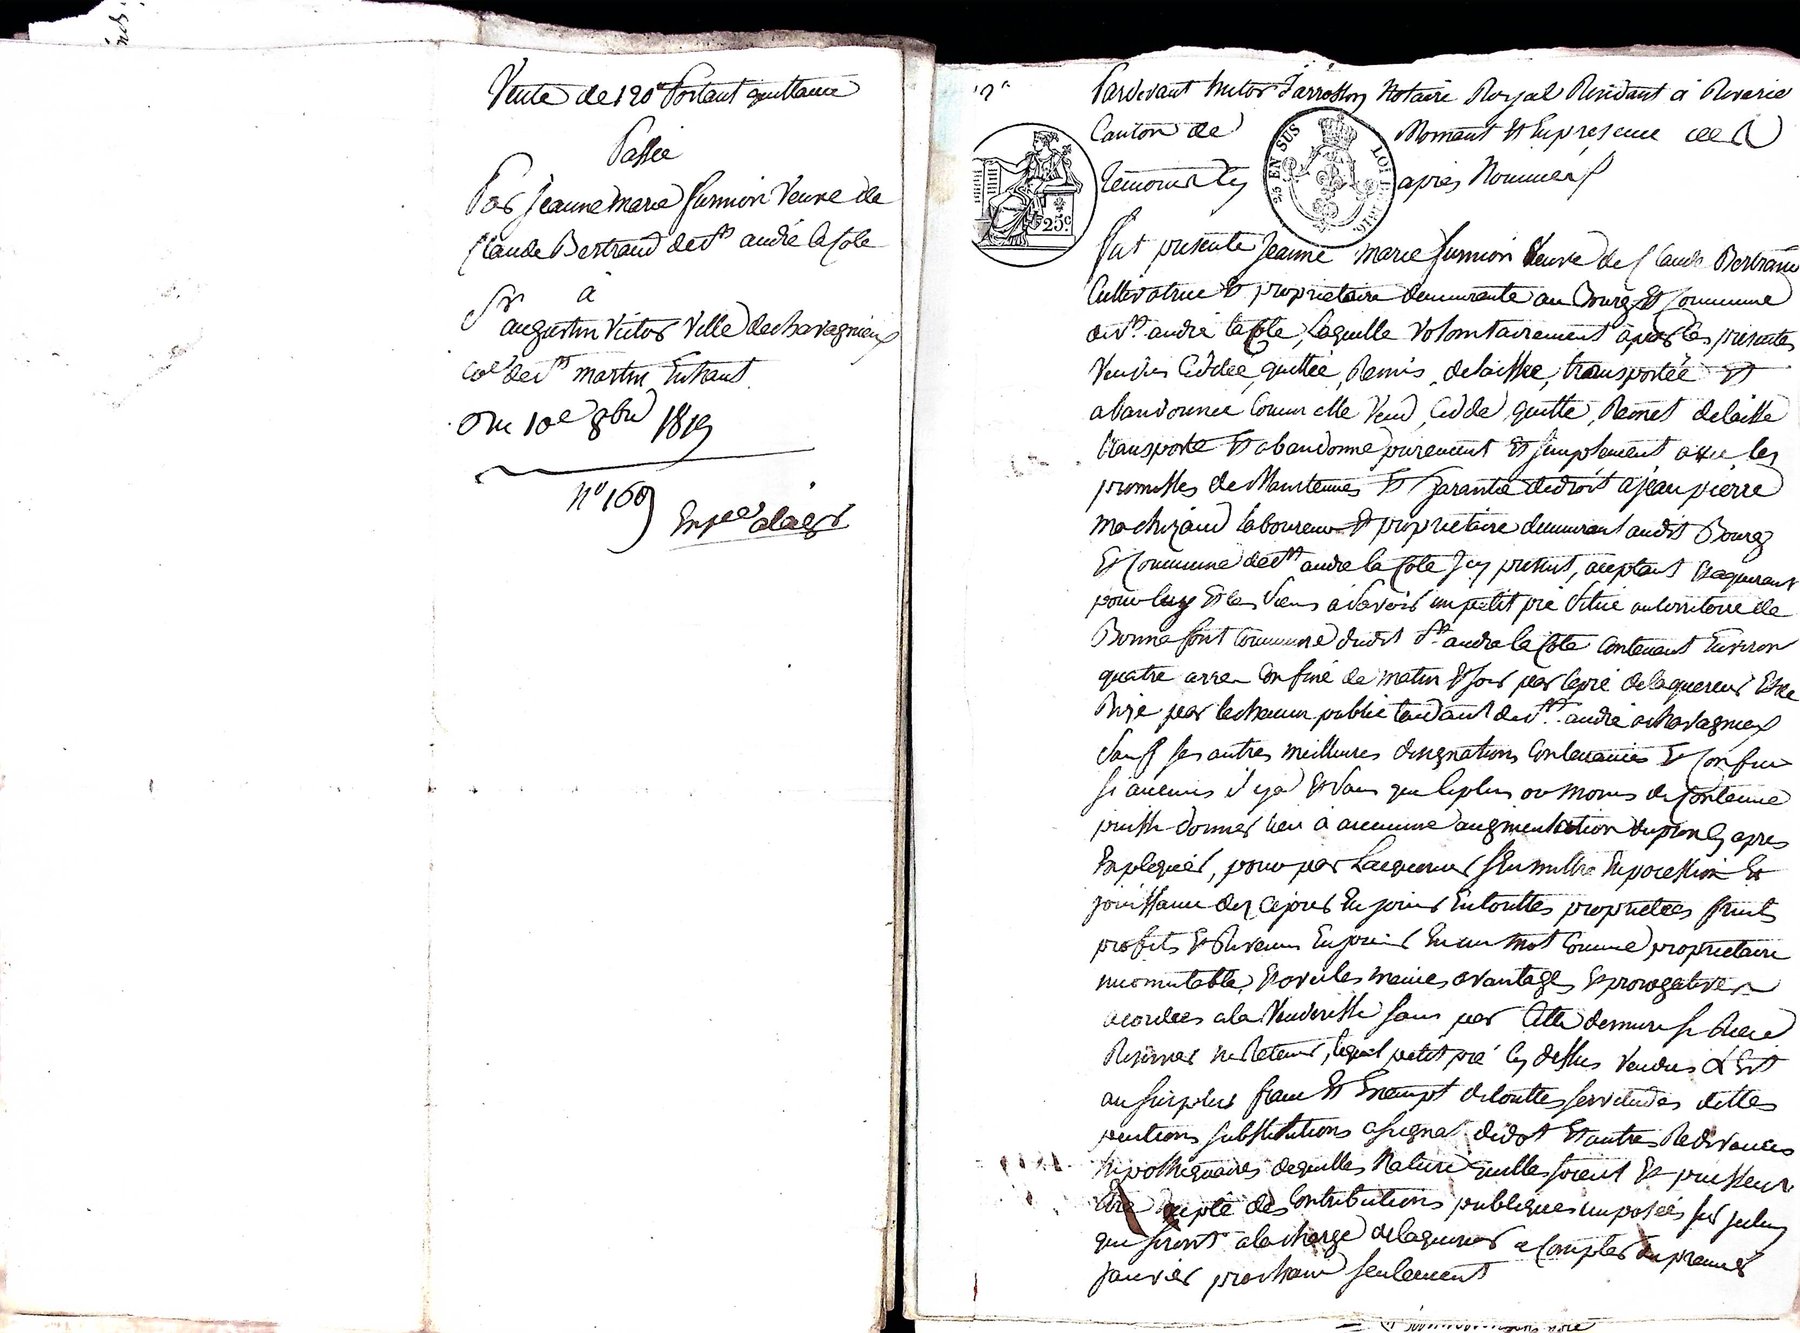 Vente de 120f Portant quittance
Passée
Par Jeanne Marie fumion Veuve de
Claude Bertrand de St andré la Cote
à
Sr augustin Victor Ville de chavagnieux
coe de St martin
Du 10e 8bre 1819
no 169
2e
Pardevant Victor Notaire Royal Résidant à Riverie
Canton de Mornant Et En presence des
temoins Cy après Nommés
25 EN SUS LOI 1816
25c
Fut presente Jeanne marie fumion Veuve de Claude Bertrand
Cultivatrice Et proprietaire demeurante au Bourg Et Commune
de St andré la Cote, Laquelle Volontairement a par les presentes
Vendue Céddée, quittée, Remis, delaissée, transportée Et
abandonnée Comme elle Vend, Cedde, quitte, Remet delaisse
transporte Et abandonne purement Et simplement avec les
promesses de Maintenues Et garantie de droit à jean pierre
laboureur Et proprietaire demeurant audit Bourg
Et Commune de St andre la Cote Icy present, aceptant Et aquerant
pour luy Et les siens a Savoir un petit pré Situé au territoire de
Bonne font Commune dudit St andre la Cote Contenant Environ
quatre ares Confiné de matin Et soir par le pré de laquereur Et de
Bize par le chemin public tendant de St andré a chavagnieux
Sauf ses autres meilleures designations Contenances Et Confins
si aucuns il y a Et Sans que le plus ou Moins de Contenue
puisse donner lieu à aucunne augmentation du prix Cy apres
Expliqué, pour par Lacquereur Sen mettre En pocession Et
jouissance des ce jour En jouir En touttes proprietées fruits
profits Et Revenus En jouir En un mot Comme proprietaire
incomutable, Et avec les memes avantages Et prerogatives
acordées a la Venderesse sans par Cette derniere se Rien
Reserver ne Retenir, lequel petit pré Cy dessus Vendus Est
au surplus franc Et Exempt de touttes servitudes dettes
pentions substitutions de dot Et autres Redevances
hipothequaires de quelles Nature quelles soient Et puissent
être des Contributions publiques imposées sur
qui seront a la charge de laquereur a Compter du premier
janvier prochain seulement